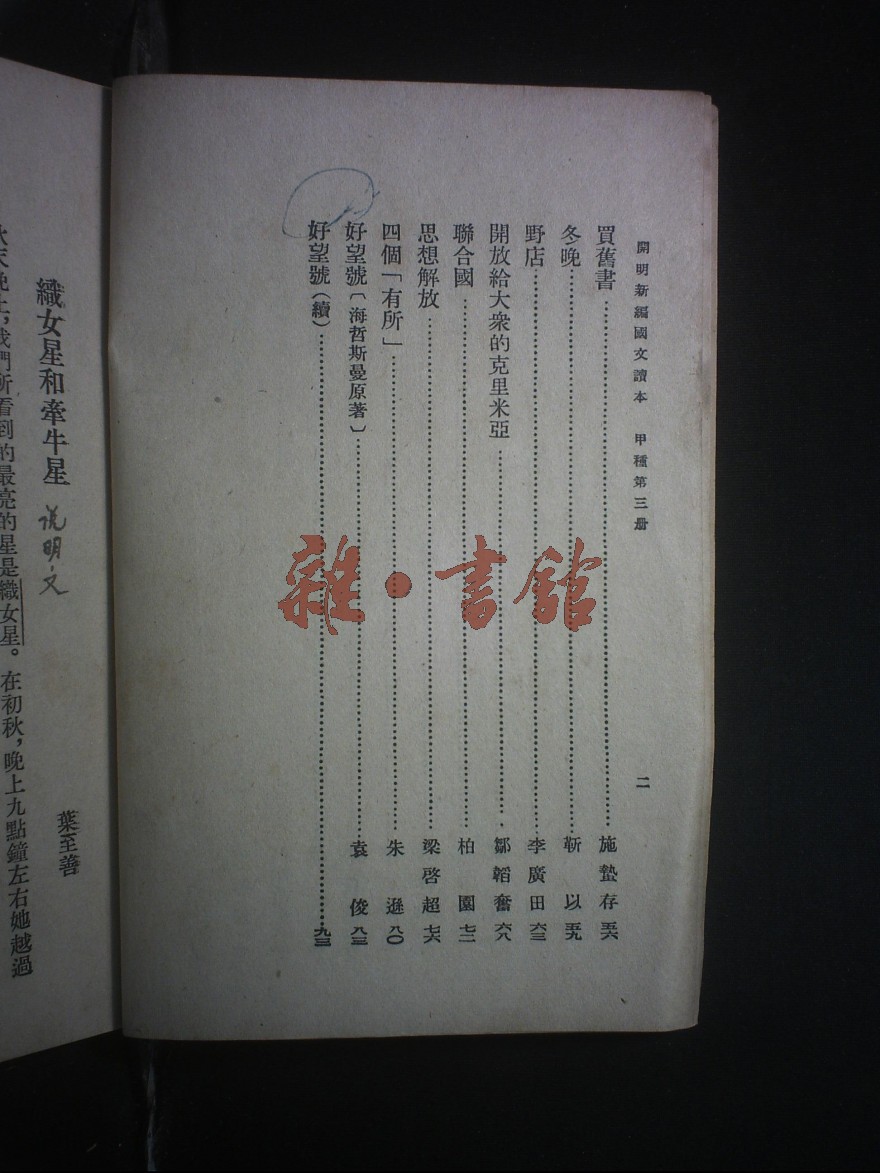 開明新編國文讀本 甲種第三册
二
買舊書……施蟄存 五六
冬晚……靳以 五九
野店……李廣田 六三
開放給大衆的克里米亞……鄒韜奮 六八
聯合國……柏園 七二
思想解放……梁啓超 七六
四個「有所」……朱遜 八〇
好望號〔海哲斯曼原著〕……袁俊 八三
好望號(續)……九三
雜·書館
織女星和牽牛星 说明文
葉至善
秋天晚上,我們所看到的最亮的星是織女星。在初秋,晚上九點鐘左右她越過